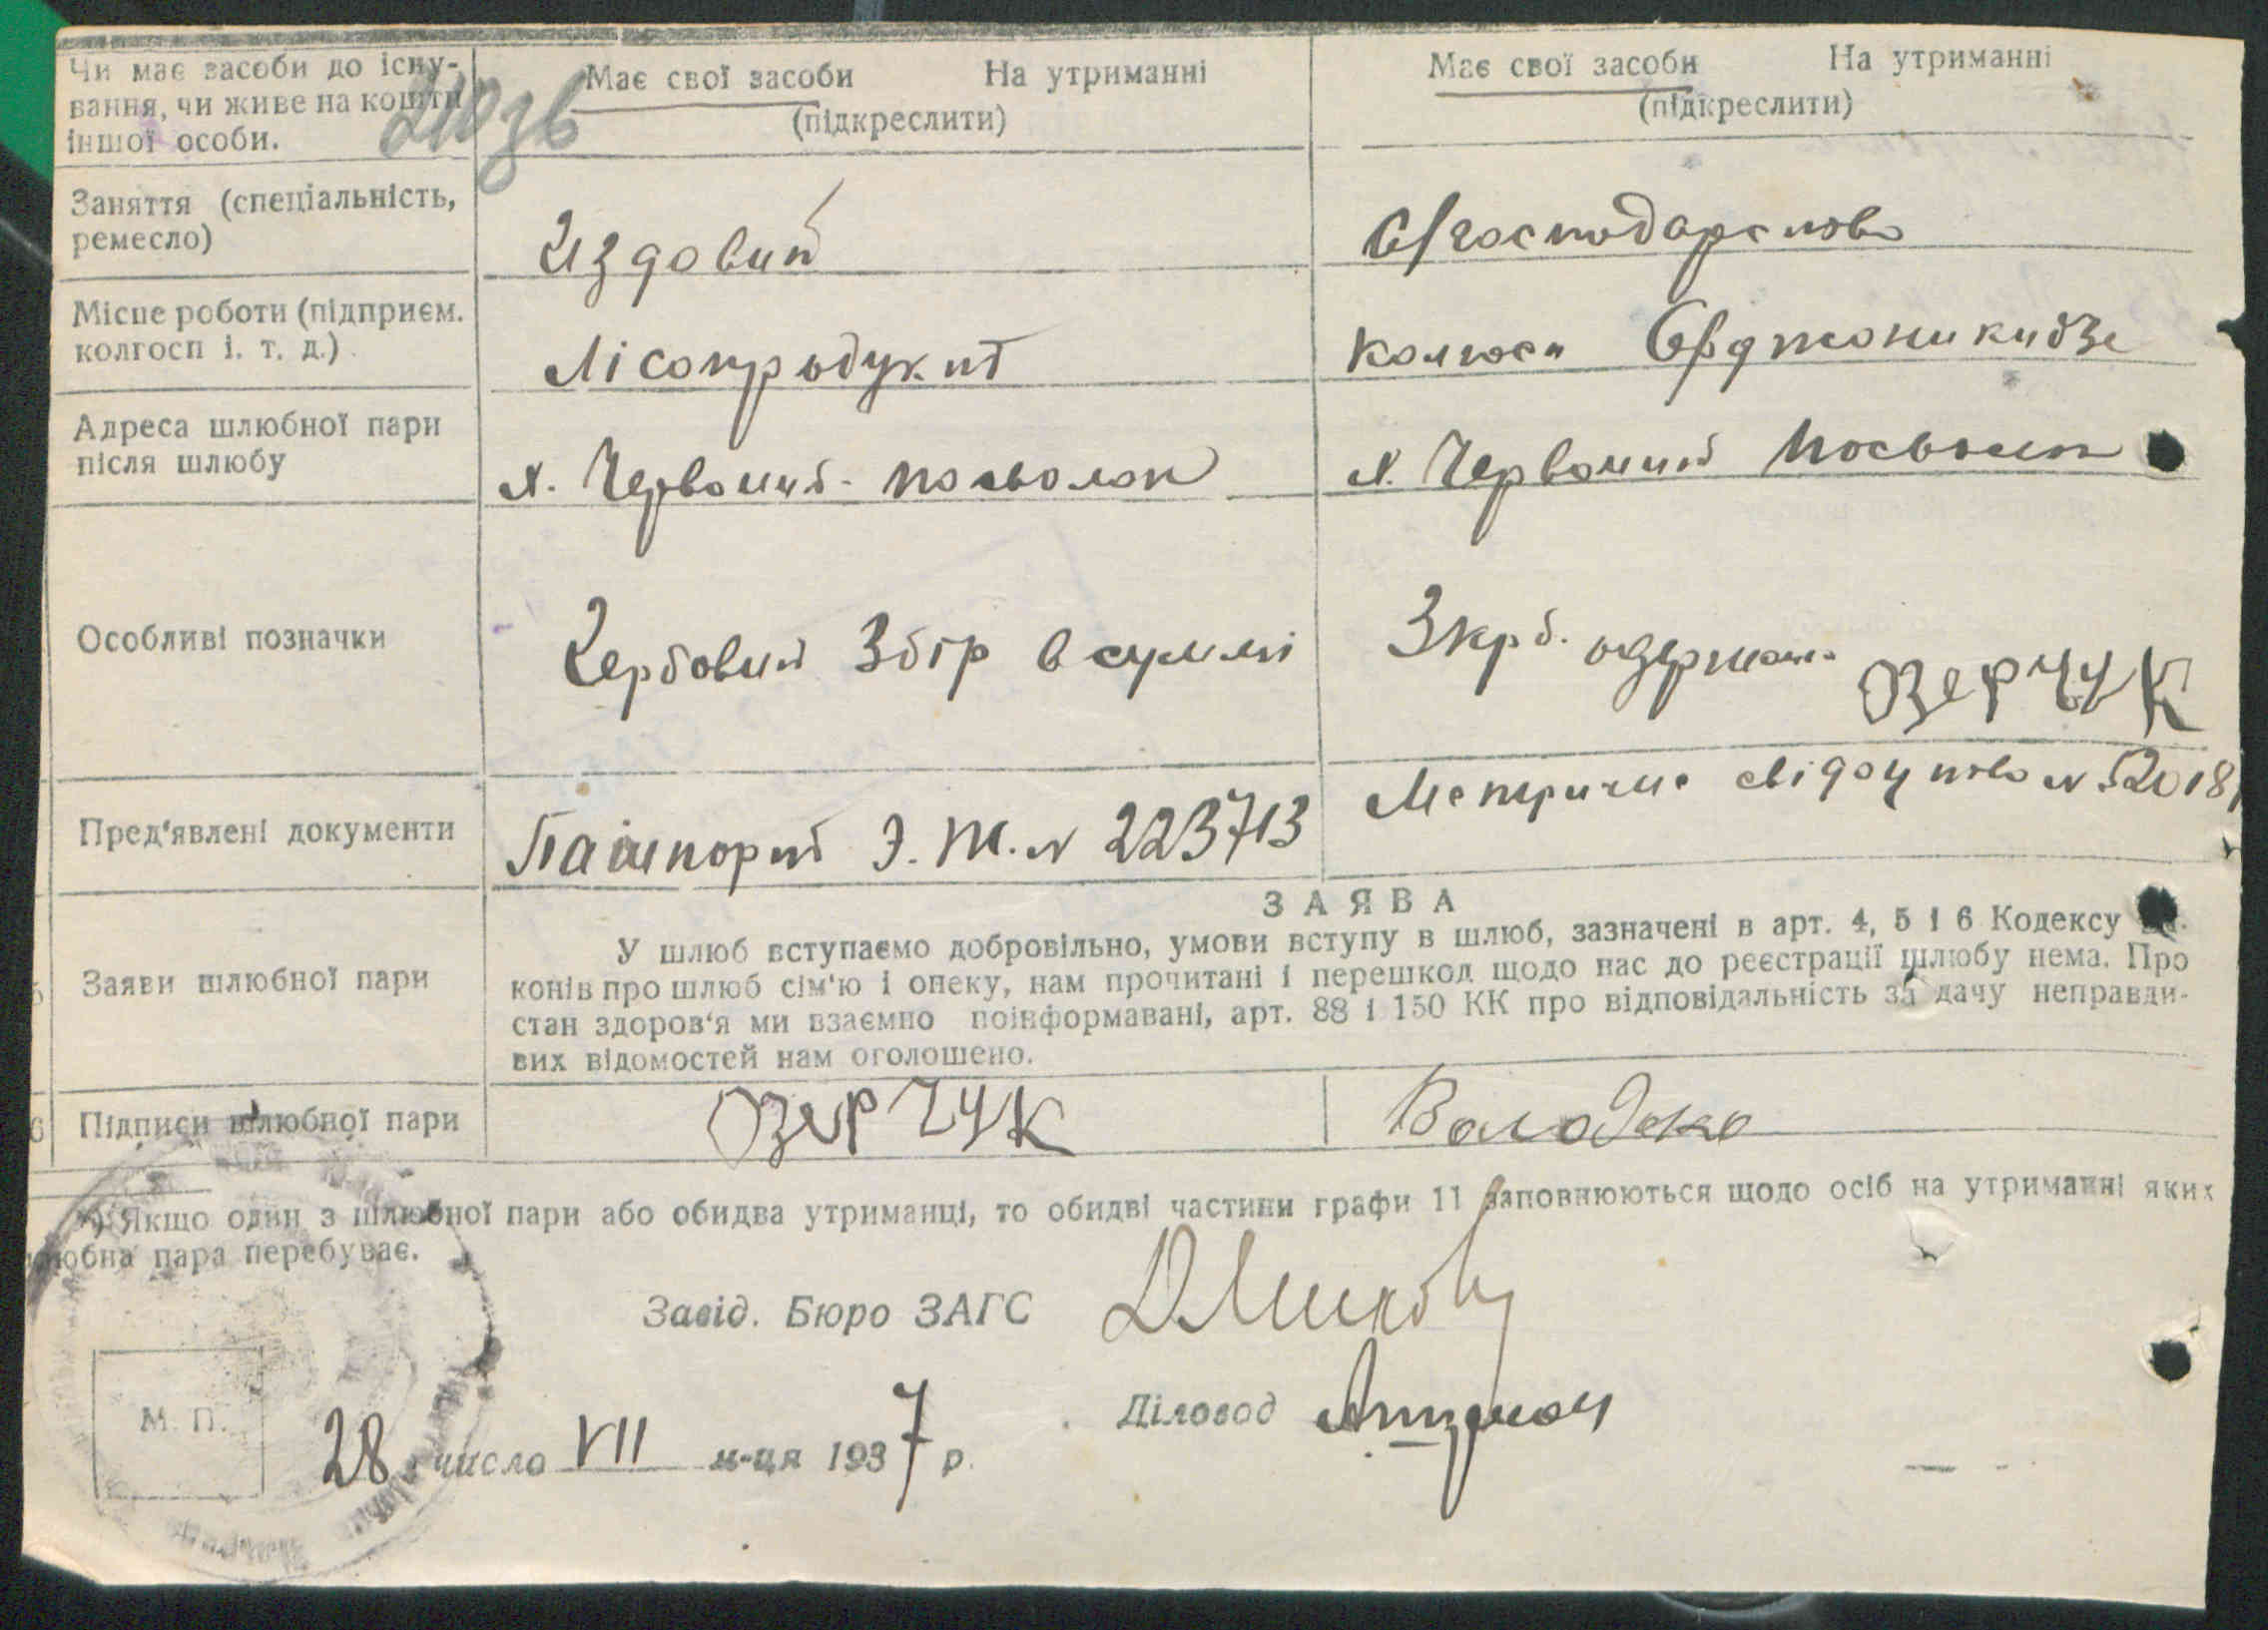 Чи має засоби до існу-
вання, чи живе на кошти
іншої особи.
Має свої засоби На утриманні
(підкреслити)
Має свої засоби На утриманні
(підкреслити)
Заняття (спеціальність,
ремесло)
Издовий
С/господарство
Місце роботи (підприєм.
колгосп і. т. д.)
Лісопродукт
Колгосп Орджоникидзе
Адреса шлюбної пари
після шлюбу
х. Червоний
х. Червоний
Особливі позначки
Гербовий Збір в суммі
3 крб. одержано ОЗЕРЧУК
Пред'явлені документи
Пашпорт Э. М. № 223713
Метричне свідоцтво № 52018
Заяви шлюбної пари
ЗАЯВА
У шлюб вступаємо добровільно, умови вступу в шлюб, зазначені в арт. 4, 5 і 6 Кодексу
конів про шлюб сім'ю і опеку, нам прочитані і перешкод щодо нас до реєстрації шлюбу нема. Про
стан здоров'я ми взаємно поінформавані, арт. 88 і 150 КК про відповідальність за дачу неправди-
вих відомостей нам оголошено.
6 Підписи шлюбної пари
ОЗЕРЧУК
Володько
*) Якщо один з шлюбної пари або обидва утриманці, то обидві частини графи 11 заповнюються щодо осіб на утриманні яких
шлюбна пара перебуває.
Завід. Бюро ЗАГС
Діловод
М. П.
28 число VII м-ця 1937 р.